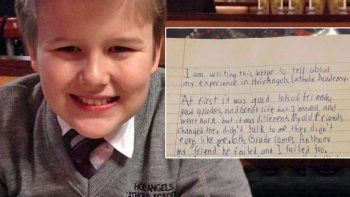 I am writing this letter to tell about
my experience in Holy Angels Catholic Academy.
At first it was good lots of friends,
good grades, and great life but I moved, and
went back but it was different. My old friends
changed they didn't talk to me they didn't
even like me. 6th Grade comes Anthony
my friend he failed and I failed too.
HOLY ANGELS
CATHOLIC ACADEMY